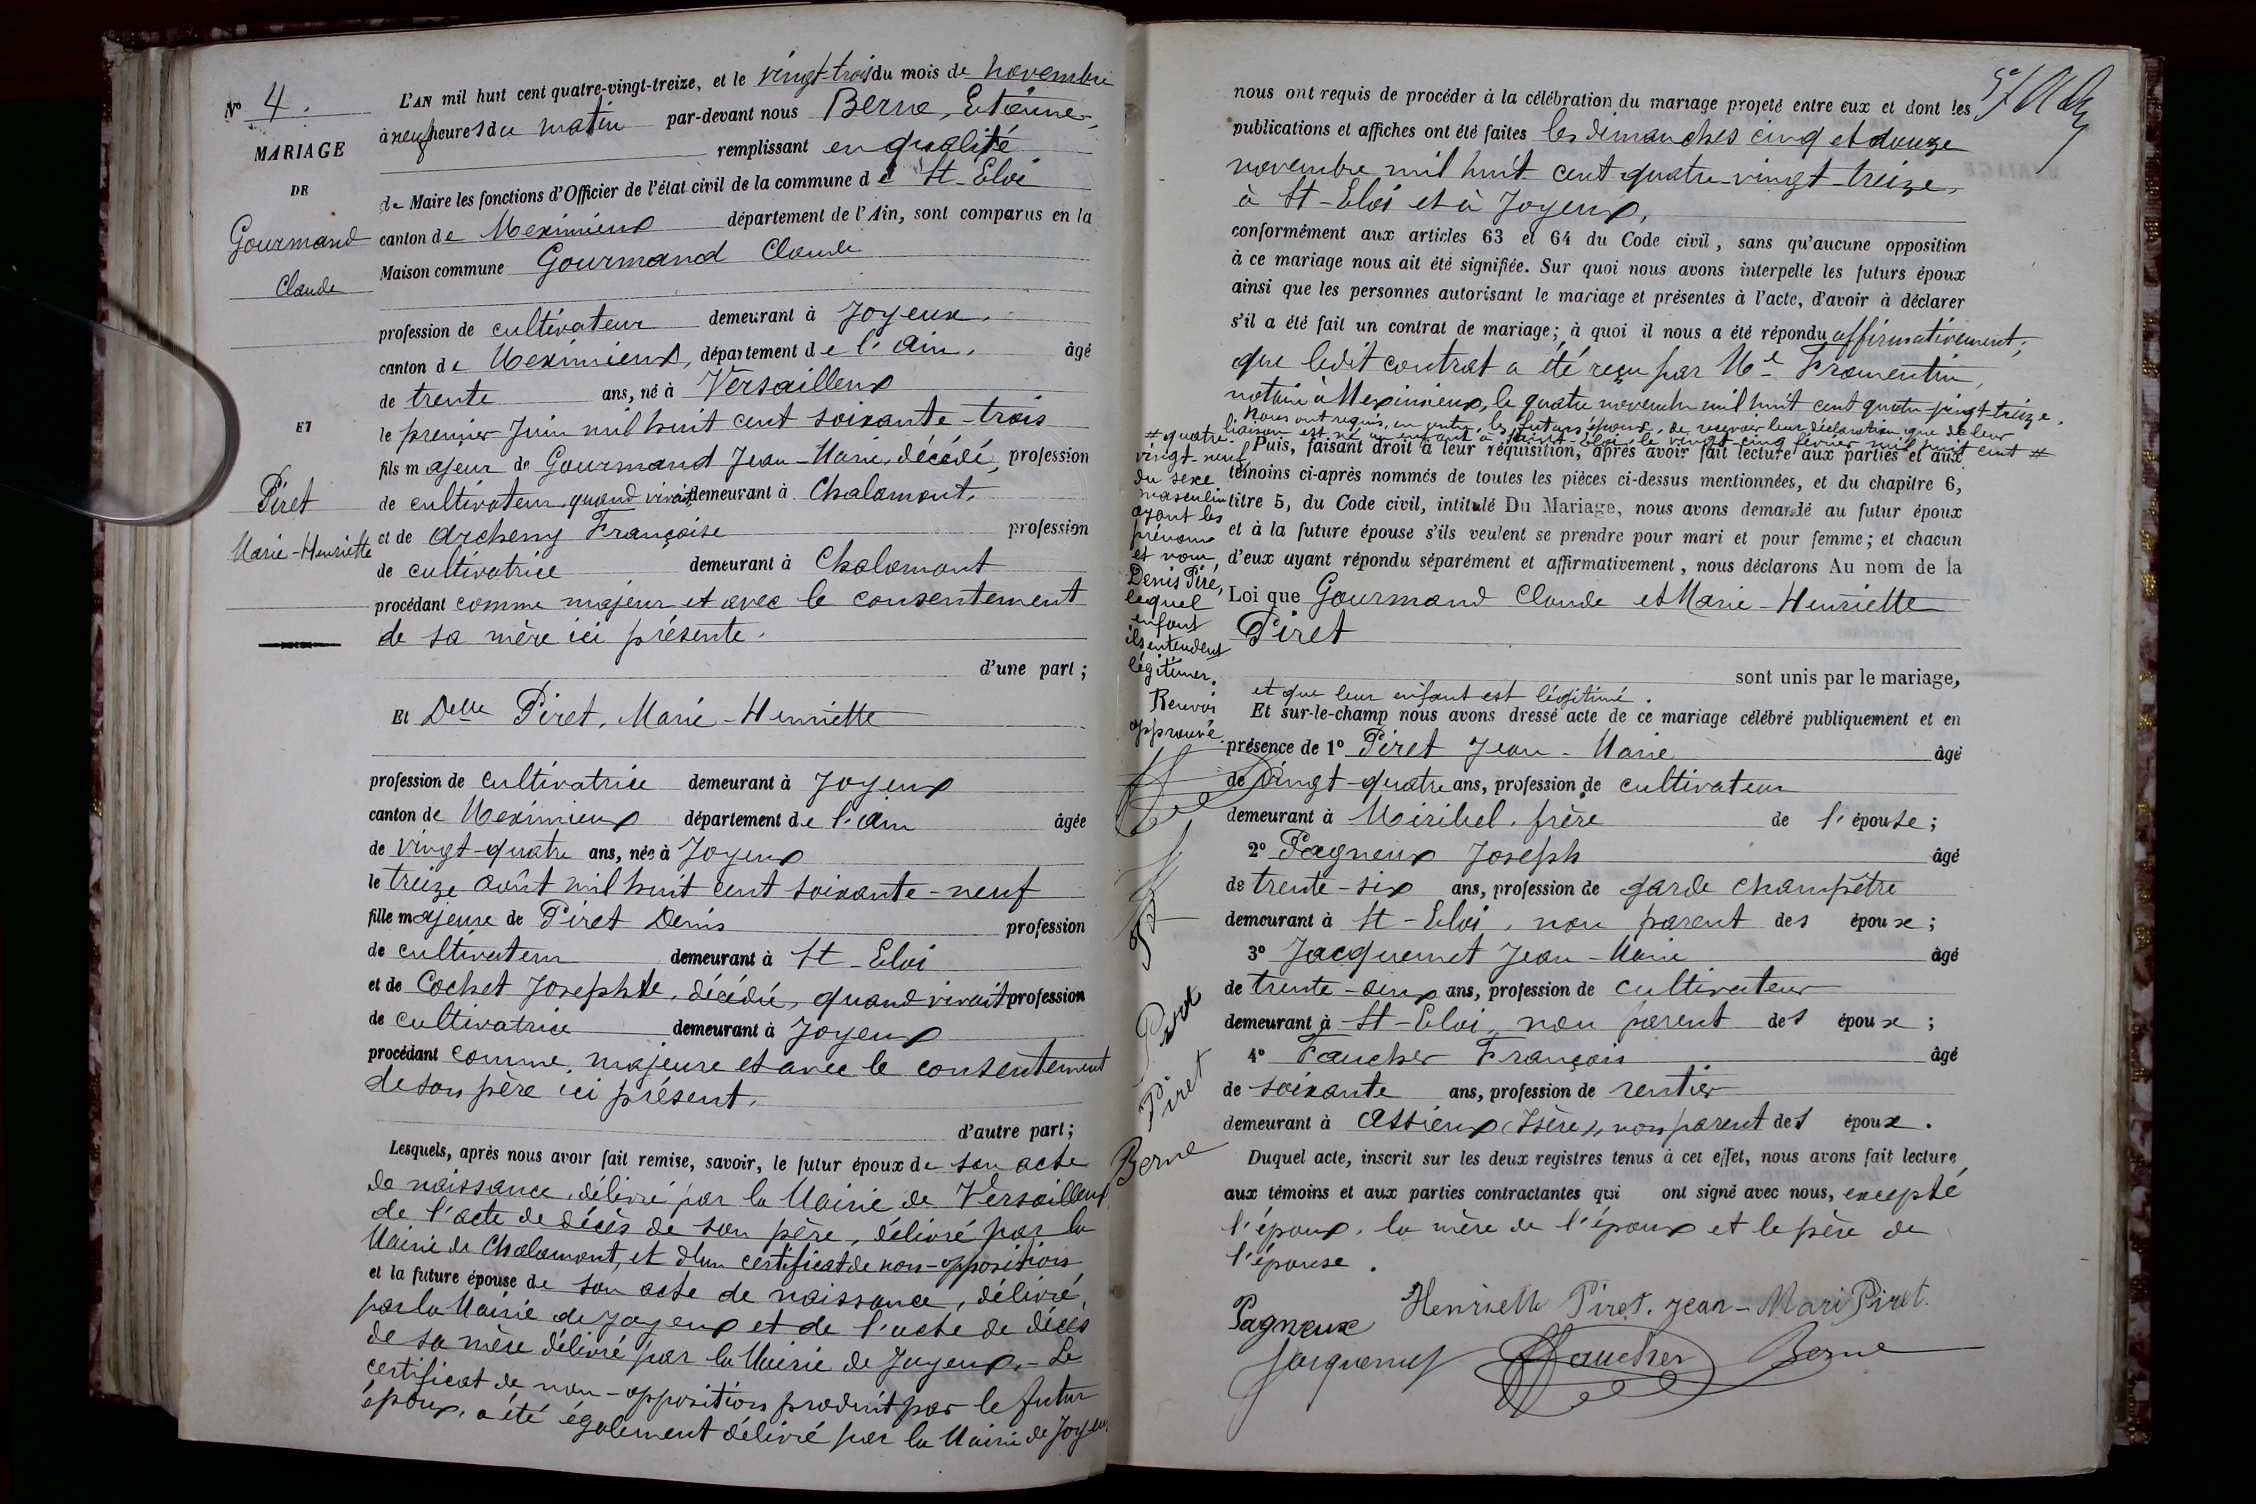 Nº 4.
MARIAGE
DE
Gourmand
Claude
ET
Piret
Marie-Henriette
L'AN mil huit cent quatre-vingt-treize, et le vingt-trois du mois de novembre
à neuf heures du matin par-devant nous Berne, Etienne,
remplissant en qualité
de Maire les fonctions d'Officier de l'état civil de la commune de St-Eloi
canton de Meximieux département de l'Ain, sont comparus en la
Maison commune Gourmand Claude
profession de cultivateur demeurant à Joyeux,
canton de Meximieux, département de l'Ain, âgé
de trente ans, né à Versailleux
le premier Juin mil huit cent soixante-trois
fils majeur de Gourmand Jean-Marie, décédé, profession
de cultivateur quand vivait demeurant à Chalamont,
et de Archeny Françoise profession
de cultivatrice demeurant à Chalamont
procédant comme majeur et avec le consentement
de sa mère ici présente.
d'une part ;
Et Delle Piret, Marie-Henriette
profession de cultivatrice demeurant à Joyeux
canton de Meximieux département de l'Ain âgée
de vingt-quatre ans, née à Joyeux
le treize août mil huit cent soixante-neuf
fille majeure de Piret Denis profession
de cultivateur demeurant à St-Eloi
et de Cochet Josephte, décédée, quand vivait profession
de cultivatrice demeurant à Joyeux
procédant comme majeure et avec le consentement
de son père ici présent,
d'autre part ;
Lesquels, après nous avoir fait remise, savoir, le futur époux de son acte
de naissance, délivré par la Mairie de Versailleux
de l'acte de décès de son père, délivré par la
Mairie de Chalamont, et d'un certificat de non-opposition
et la future épouse de son acte de naissance, délivré,
par la Mairie de Joyeux et de l'acte de décès
de sa mère délivré par la Mairie de Joyeux. - Le
certificat de non-opposition produit par le futur
époux, a été également délivré par la Mairie de Joyeux.
nous ont requis de procéder à la célébration du mariage projeté entre eux et dont les
publications et affiches ont été faites les dimanches cinq et douze
novembre mil huit cent quatre-vingt-treize,
à St-Eloi et à Joyeux,
conformément aux articles 63 et 64 du Code civil, sans qu'aucune opposition
à ce mariage nous ait été signifiée. Sur quoi nous avons interpellé les futurs époux
ainsi que les personnes autorisant le mariage et présentes à l'acte, d'avoir à déclarer
s'il a été fait un contrat de mariage ; à quoi il nous a été répondu affirmativement;
que ledit contrat a été reçu par Me Fromentin,
notaire à Meximieux, le quatre novembre mil huit cent quatre-vingt-treize.
Nous ont requis, en outre, les futurs époux, de recevoir leur déclaration que de leur
liaison est né un enfant à Saint-Eloi, le vingt-cinq février mil huit cent #
# quatre-
vingt-neuf
du sexe
masculin
ayant les
prénoms
et nom,
Denis Piret,
lequel
enfant
ils entendent
légitimer.
Renvoi
approuvé.
Piret
Piret
Berne
Puis, faisant droit à leur réquisition, après avoir fait lecture aux parties et aux
témoins ci-après nommés de toutes les pièces ci-dessus mentionnées, et du chapitre 6,
titre 5, du Code civil, intitulé Du Mariage, nous avons demandé au futur époux
et à la future épouse s'ils veulent se prendre pour mari et pour femme ; et chacun
d'eux ayant répondu séparément et affirmativement, nous déclarons Au nom de la
Loi que Gourmand Claude et Marie-Henriette
Piret
sont unis par le mariage,
et que leur enfant est légitimé.
Et sur-le-champ nous avons dressé acte de ce mariage célébré publiquement et en
présence de 1º Piret Jean-Marie âgé
de vingt-quatre ans, profession de cultivateur
demeurant à Miribel, frère de l'épouse ;
2º Pagneux Joseph âgé
de trente-six ans, profession de garde champêtre
demeurant à St-Eloi, non parent des époux ;
3º Jacquemet Jean-Marie âgé
de trente-deux ans, profession de cultivateur
demeurant à St-Eloi, non parent des époux ;
4º Faucher François âgé
de soixante ans, profession de rentier
demeurant à Assieux (Isère), non parent des époux.
Duquel acte, inscrit sur les deux registres tenus à cet effet, nous avons fait lecture
aux témoins et aux parties contractantes qui ont signé avec nous, excepté
l'époux, la mère de l'époux et le père de
l'épouse.
Henriette Piret. Jean-Mari Piret.
Pagneux
Jacquemet Faucher Berne